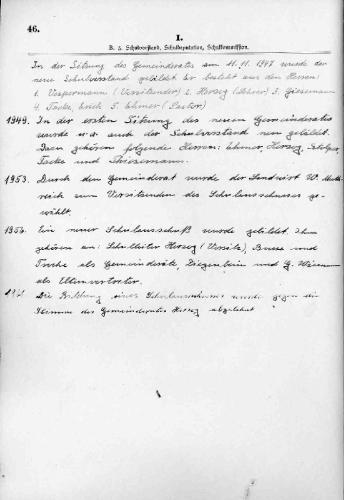 46.
I.
B. 5. Schulvorstand, Schuldeputation, Schulkommission.
In der Sitzung des Gemeinderates am 11.11.1947 wurde der
neue Schulvorstand gebildet. Er besteht aus den Herren:
1. Vespermann (Vorsitzender) 2. Herzog (Lehrer) 3. Giesemann
4. Tacke, Erich 5. Ehmer (Pastor)
1949. In der ersten Sitzung des neuen Gemeinderates
wurde u.a. auch der Schulvorstand neu gebildet.
Dazu gehören folgende Herren: Ehmer, Herzog,
Tacke und
1953. Durch den Gemeinderat wurde der Landwirt W.
zum Vorsitzenden des Schulausschusses ge-
wählt.
1956. Ein neuer Schulausschuß wurde gebildet. Ihm
gehören an: Schulleiter Herzog (Vorsitz), und
als Gemeinderäte, Ziegenbein und G.
als Elternvertreter.
Die Bildung eines Schulausschusses wurde gegen die
Stimme des Gemeinderates Herzog abgelehnt